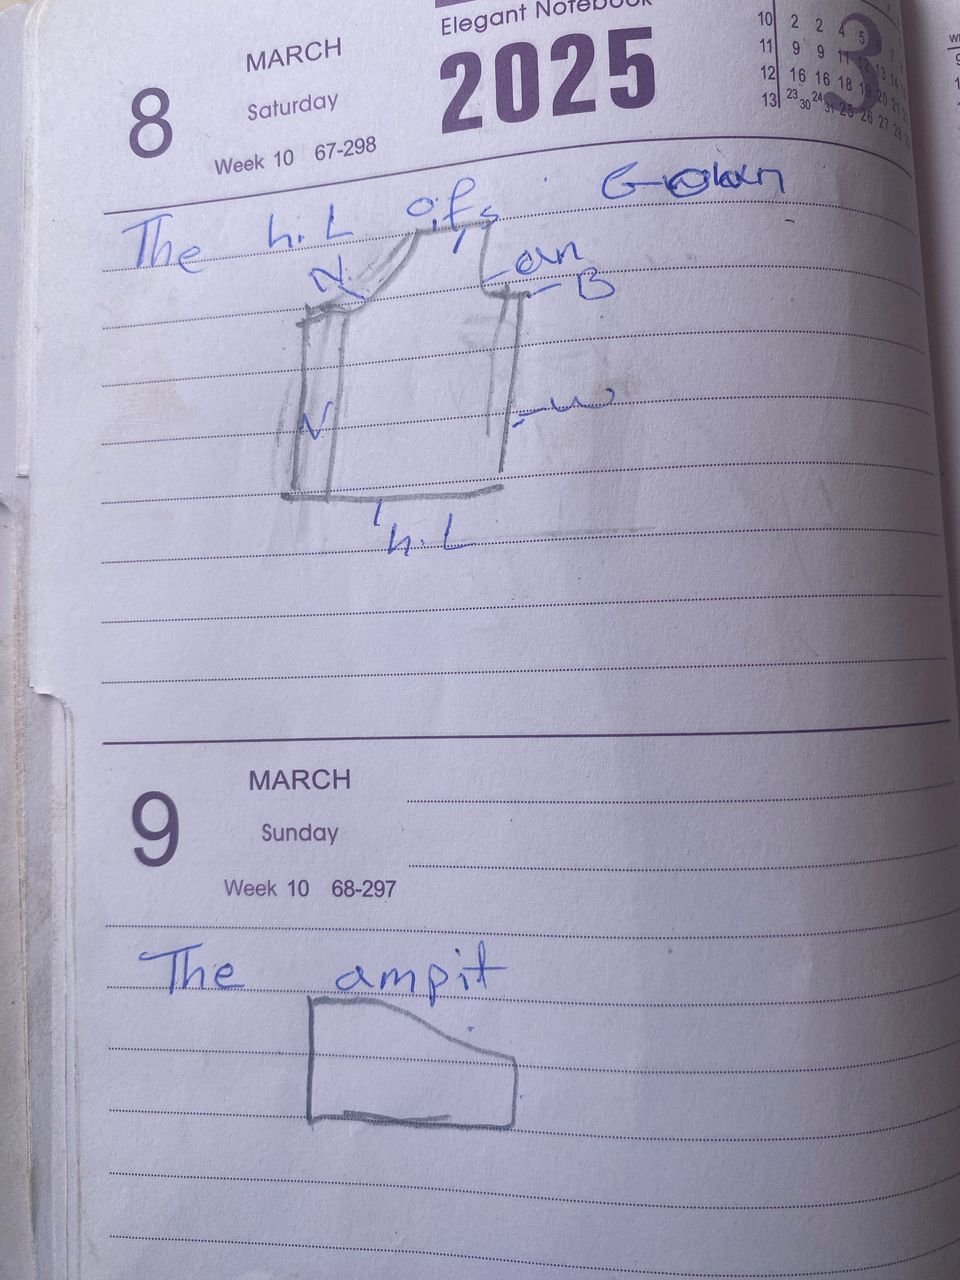 Elegant Notebook
8 MARCH 2025
Saturday
Week 10 67-298
3
10 2 2 4 5
11 9 9 11 12 13 14
12 16 16 18 19 20 21
13 23 30 24 31 25 26 27 28
The h.L of
S
N
an
B
N
w
h.L
9 MARCH
Sunday
Week 10 68-297
The ampit